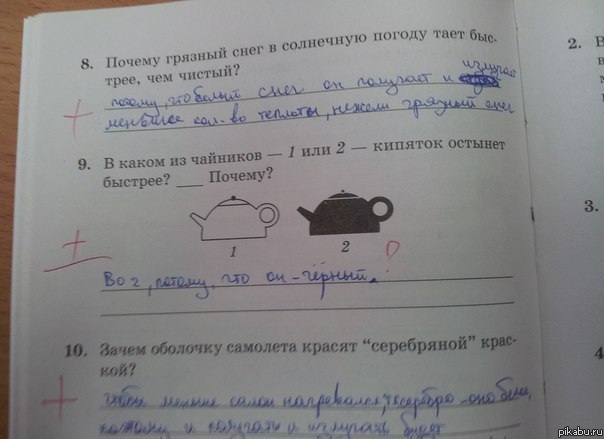 8. Почему грязный снег в солнечную погоду тает быс-
трее, чем чистый?
излучает
потому, что белый снег он получает и
меньшее кол-во теплоты, нежели грязный снег
9. В каком из чайников — 1 или 2 — кипяток остынет
быстрее? ___ Почему?
1
2
Во 2, потому, что он - чёрный.
10. Зачем оболочку самолета красят "серебряной" крас-
кой?
чтобы меньше салон нагревался,
поэтому и получать и излучать будет
2.
3.
4
pikabu.ru